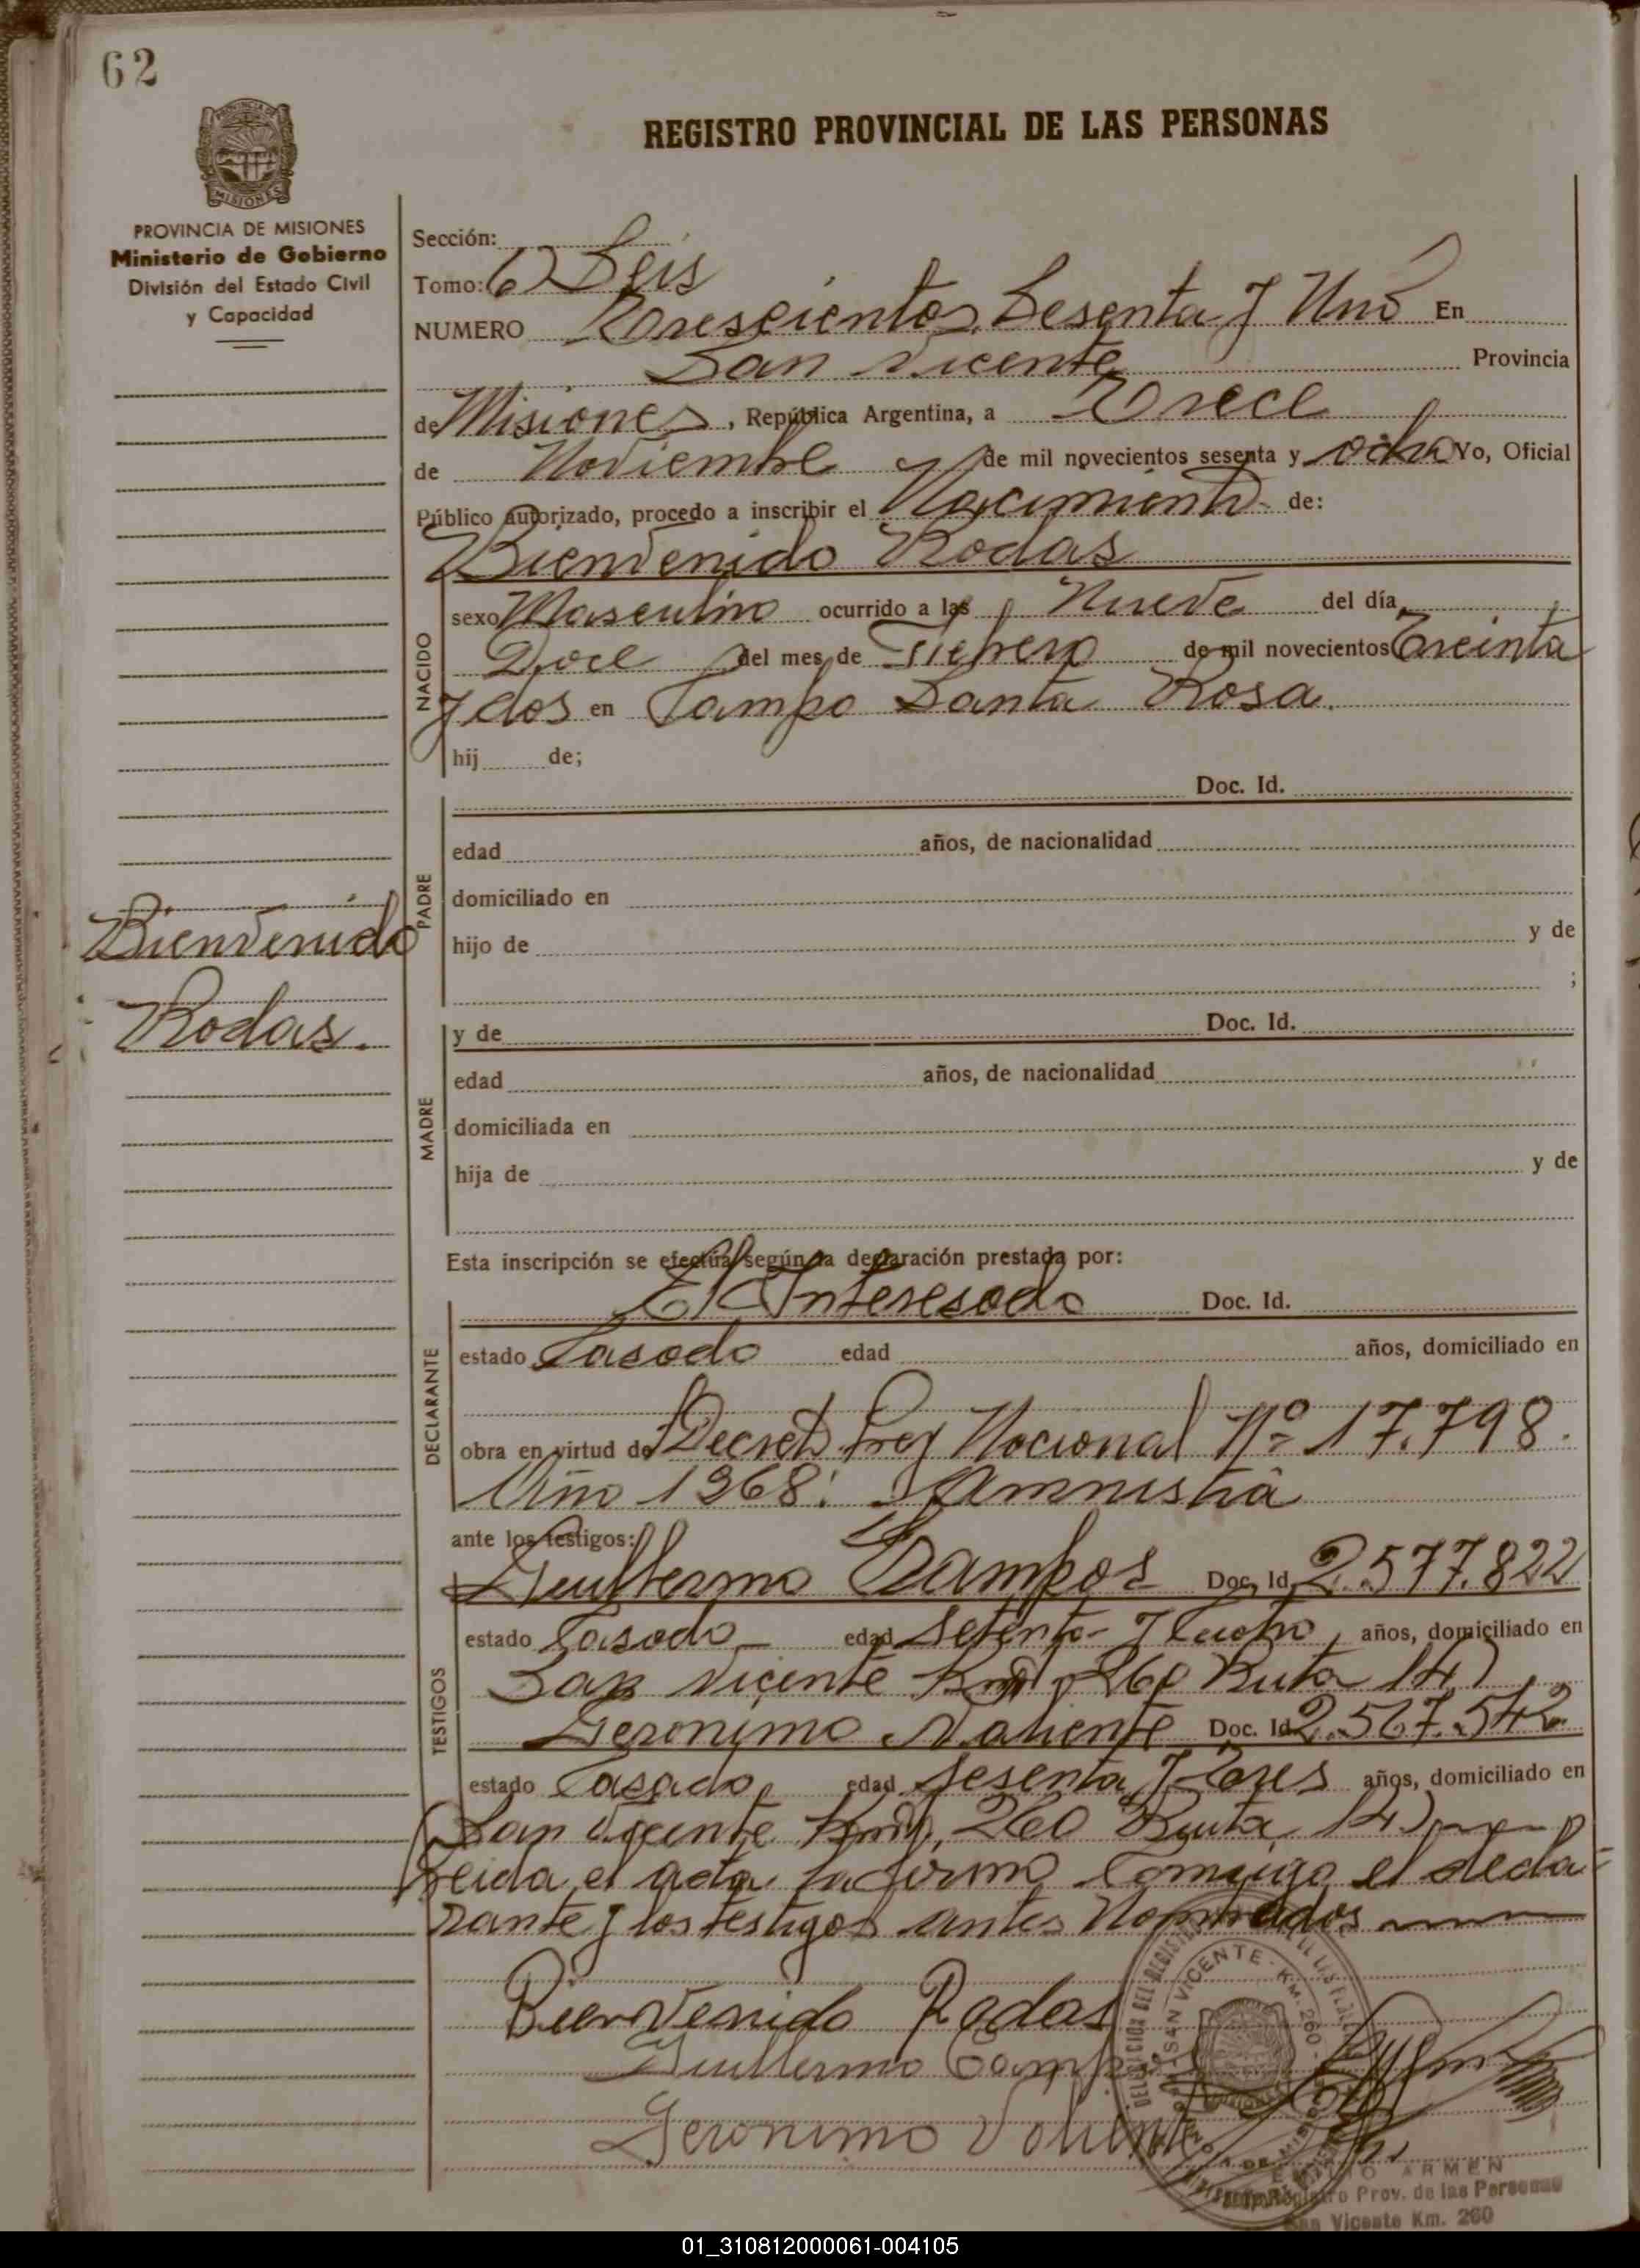 62
REGISTRO PROVINCIAL DE LAS PERSONAS
MISIONES
PROVINCIA DE MISIONES
Ministerio de Gobierno
División del Estado Civil
y Capacidad
Sección:
Tomo: 6) Seis
NUMERO Trescientos Sesenta y Uno En
San Vicente Provincia
de Misiones, República Argentina, a Trece
de Noviembre de mil novecientos sesenta y ocho Yo, Oficial
Público autorizado, procedo a inscribir el Nacimiento de:
Bienvenido Rodas
NACIDO
sexo Masculino ocurrido a las Nueve del día
Doce del mes de Febrero de mil novecientos Treinta
y dos en Campo Santa Rosa.
hij de;
PADRE
Doc. Id.
edad años, de nacionalidad
domiciliado en
hijo de y de
;
Bienvenido
Rodas.
MADRE
y de Doc. Id.
edad años, de nacionalidad
domiciliada en
hija de y de
Esta inscripción se efectúa según la declaración prestada por:
DECLARANTE
El Interesado Doc. Id.
estado Casado edad años, domiciliado en
obra en virtud de Decreto Ley Nacional Nº 17.798.
Año 1968: Amnistia
ante los testigos:
TESTIGOS
Guillermo Campos Doc. Id. 2.577.822
estado Casado edad Setenta y Cuatro, años, domiciliado en
San Vicente Km 260 Ruta 14)
Geronimo Valiente Doc. Id. 2.567.542
estado Casado, edad Sesenta y Tres años, domiciliado en
San Vicente Km, 260 Ruta 14)
Leida el acta la firma Conmigo el decla-
rante y los testigos antes Nombrados
Bienvenido Rodas
Guillermo Camp
Geronimo Valiente
SAN VICENTE - KM. 260 -
ARMEN
Registro Prov. de las Personas
San Vicente Km. 260
01_310812000061-004105